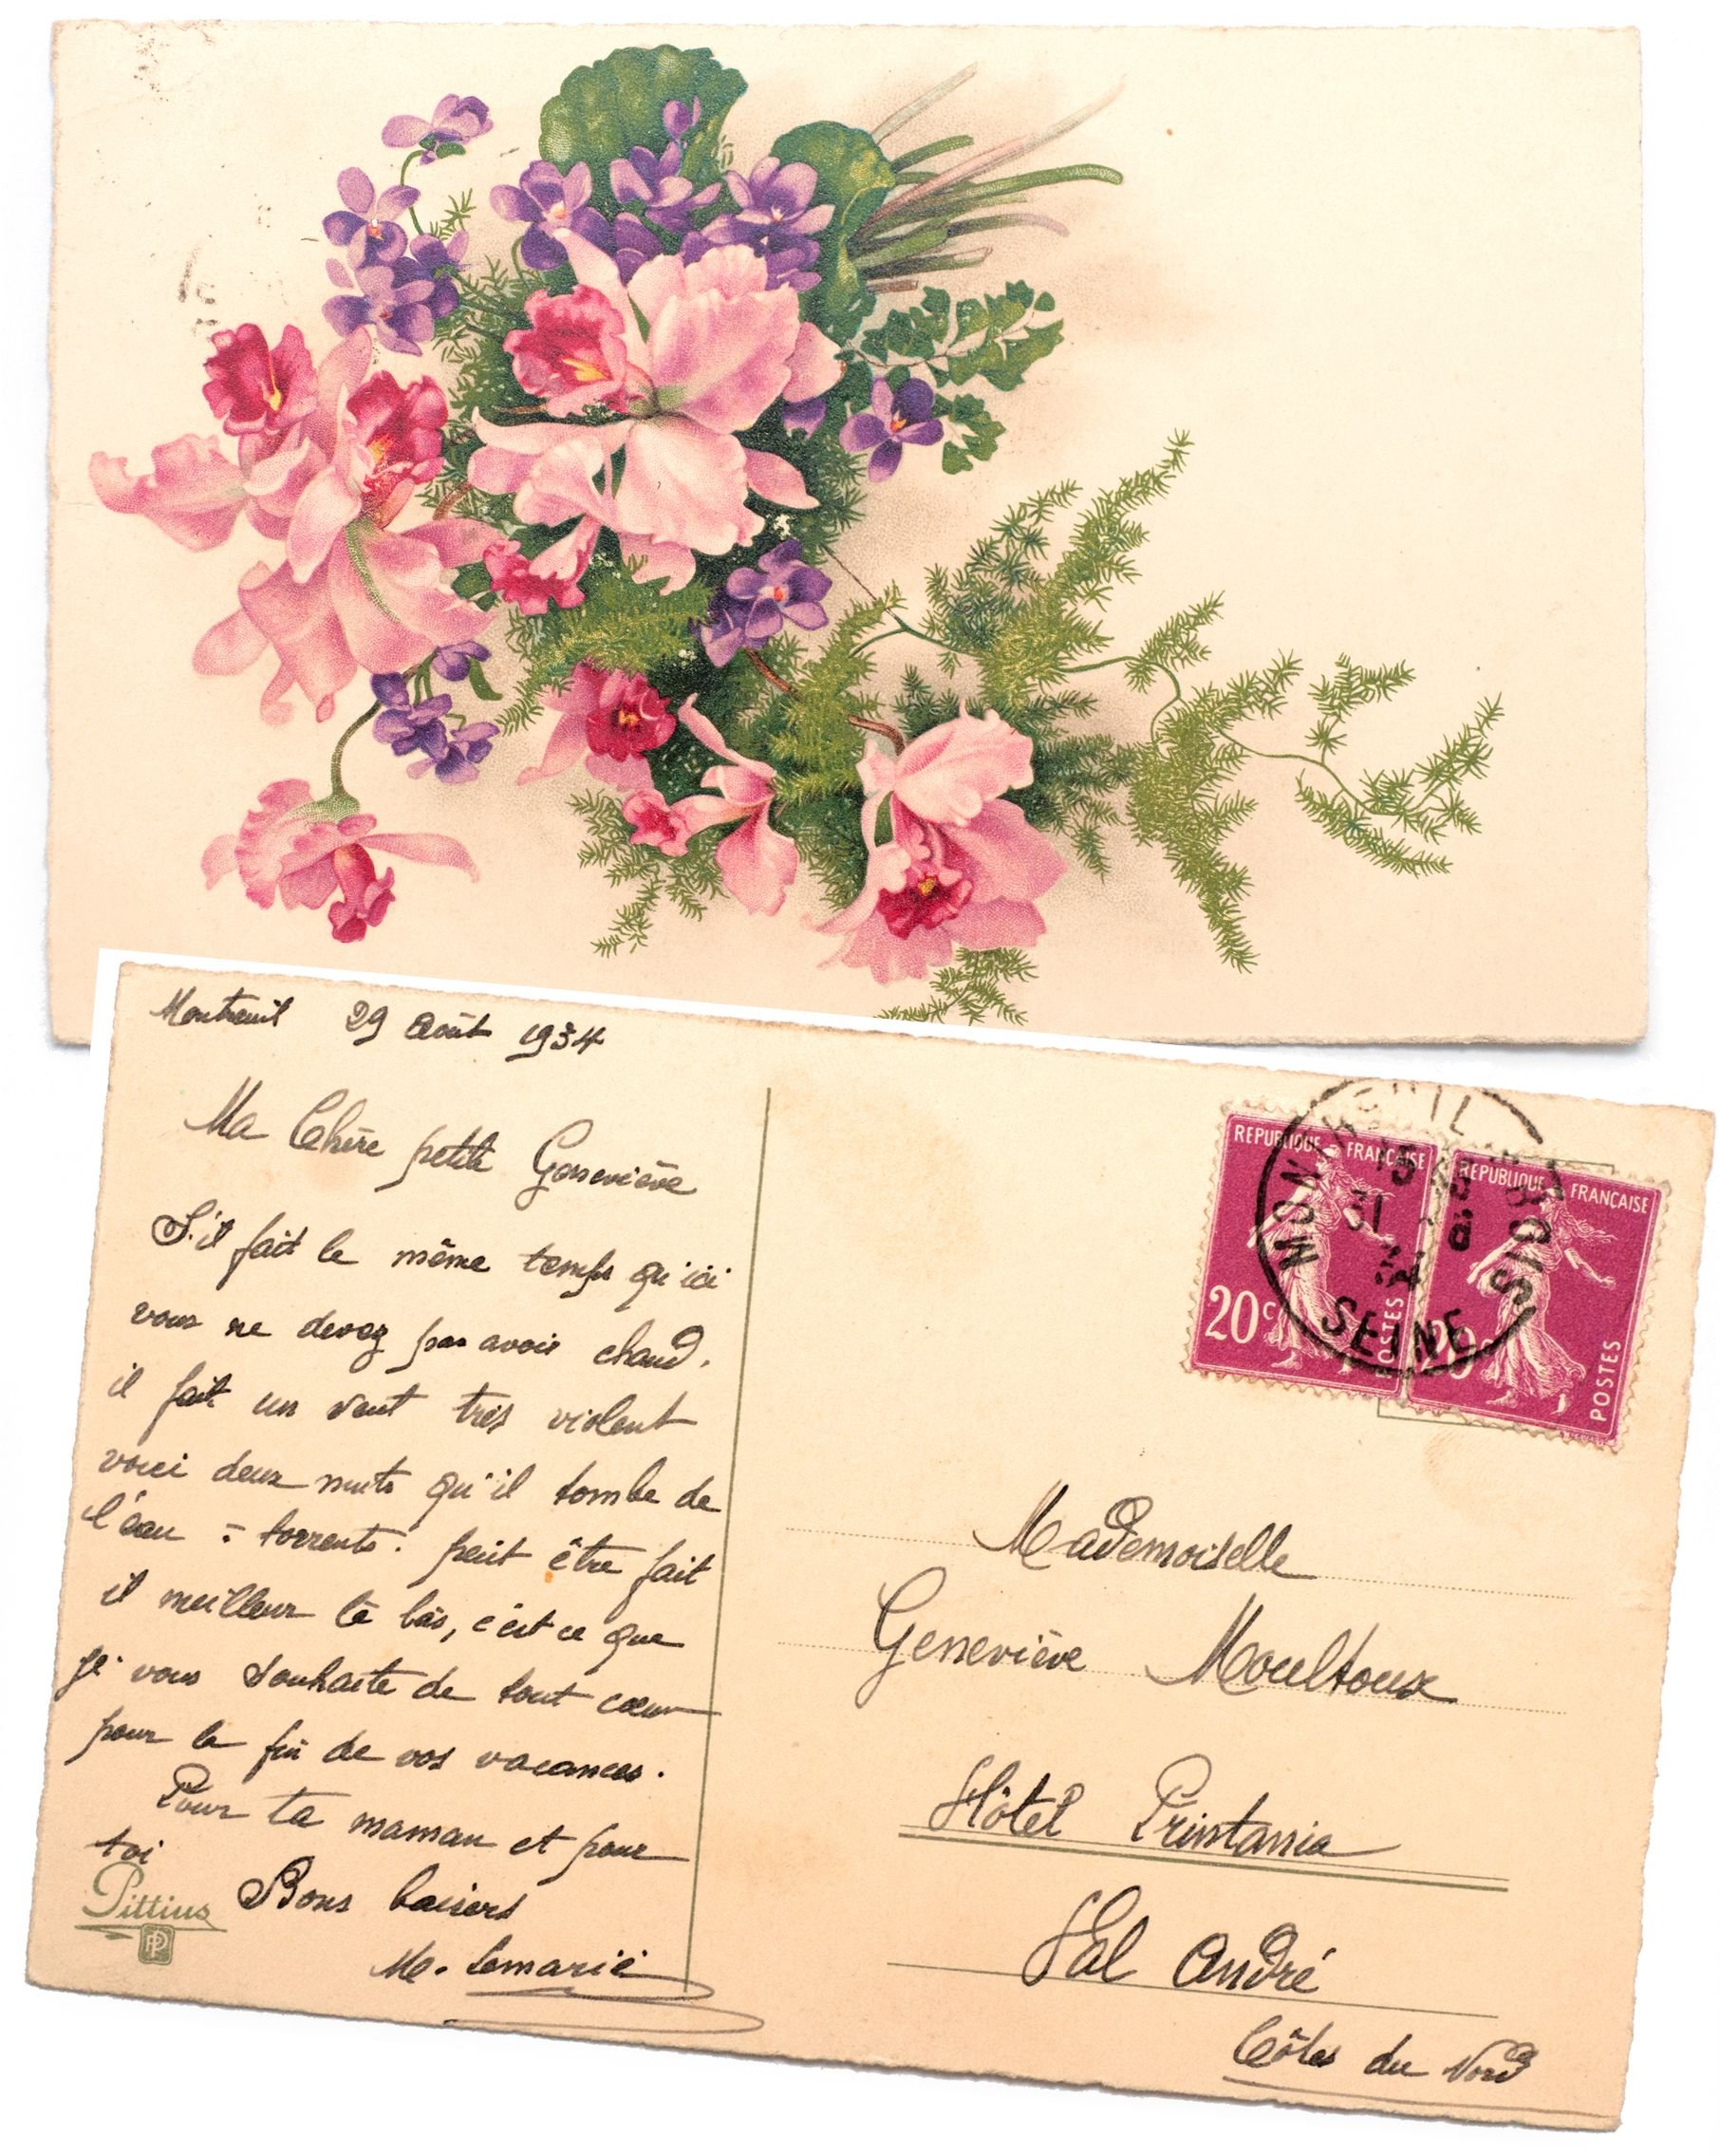 Montreuil 29 Août 1934
Ma Chère petite Geneviève
S'il fait le même temps qu'ici
vous ne devez pas avoir chaud.
il fait un vent très violent
voici deux nuits qu'il tombe de
l'eau à torrents. peut être fait
il meilleur là bas, c'est ce que
je vous souhaite de tout cœur
pour la fin de vos vacances.
Pour ta maman et pour
toi
Bons baisers
M. Lemarié
Pittius
PP
REPUBLIQUE FRANÇAISE
20c
POSTES
REPUBLIQUE FRANÇAISE
20c
POSTES
MONTREUIL
S BOIS
31
34
SEINE
Mademoiselle
Geneviève Moultoux
Hôtel Printania
Val André
Côtes du Nord